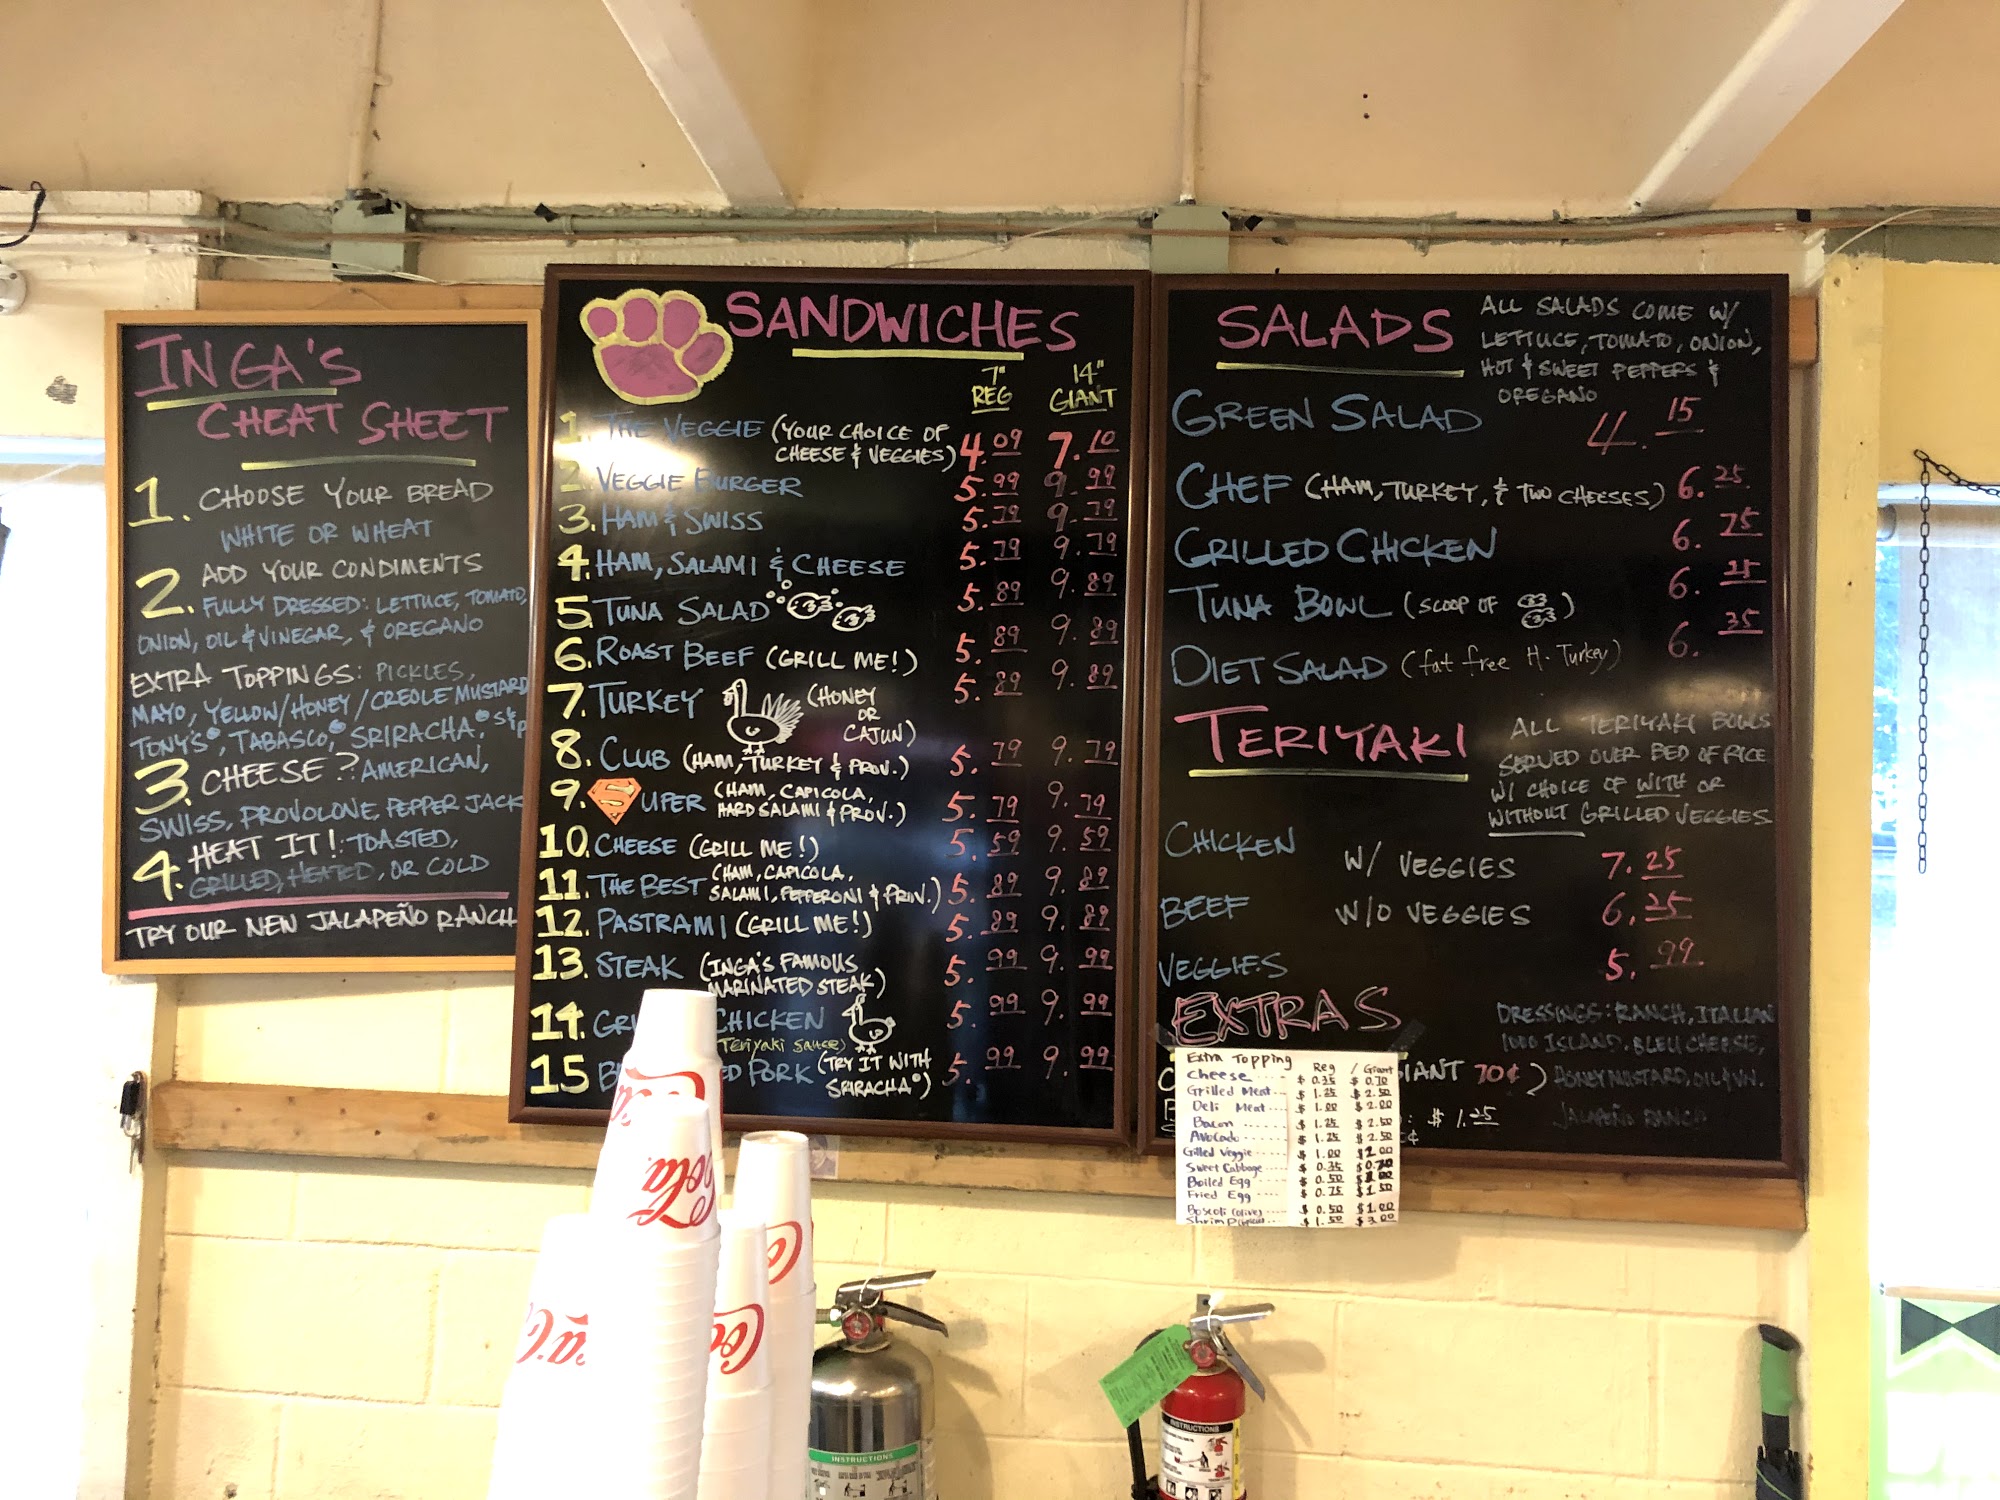 INGA'S
CHEAT SHEET
1. CHOOSE YOUR BREAD
WHITE OR WHEAT
2. ADD YOUR CONDIMENTS
FULLY DRESSED: LETTUCE, TOMATO,
ONION, OIL & VINEGAR, & OREGANO
EXTRA TOPPINGS: PICKLES,
MAYO, YELLOW/HONEY/CREOLE MUSTARD
TONY'S®, TABASCO®, SRIRACHA®, S&P
3. CHEESE? AMERICAN,
SWISS, PROVOLONE, PEPPER JACK
4. HEAT IT!: TOASTED,
GRILLED, HEATED, OR COLD
TRY OUR NEW JALAPEÑO RANCH
SANDWICHES
7" 14"
REG GIANT
1. THE VEGGIE (YOUR CHOICE OF
CHEESE & VEGGIES) 4.09 7.10
2. VEGGIE BURGER 5.99 9.99
3. HAM & SWISS 5.79 9.79
4. HAM, SALAMI & CHEESE 5.79 9.79
5. TUNA SALAD 5.89 9.89
6. ROAST BEEF (GRILL ME!) 5.89 9.89
7. TURKEY (HONEY
OR
CAJUN) 5.89 9.89
8. CLUB (HAM, TURKEY & PROV.) 5.79 9.79
9. SUPER (HAM, CAPICOLA,
HARD SALAMI & PROV.) 5.79 9.79
10. CHEESE (GRILL ME!) 5.59 9.59
11. THE BEST (HAM, CAPICOLA,
SALAMI, PEPPERONI & PROV.) 5.89 9.89
12. PASTRAMI (GRILL ME!) 5.89 9.89
13. STEAK (INGA'S FAMOUS
MARINATED STEAK) 5.99 9.99
14. CHICKEN 5.99 9.99
Teriyaki sauce)
15 PORK (TRY IT WITH
SRIRACHA®) 5.99 9.99
SALADS
ALL SALADS COME W/
LETTUCE, TOMATO, ONION,
HOT & SWEET PEPPERS &
OREGANO
GREEN SALAD 4.15
CHEF (HAM, TURKEY, & TWO CHEESES) 6.25
GRILLED CHICKEN 6.75
TUNA BOWL (SCOOP OF ) 6.25
DIET SALAD (fat free H. Turkey) 6.35
TERIYAKI
ALL TERIYAKI BOWLS
SERVED OVER BED OF RICE
W/ CHOICE OF WITH OR
WITHOUT GRILLED VEGGIES
CHICKEN W/ VEGGIES 7.25
BEEF W/O VEGGIES 6.25
VEGGIES 5.99
EXTRAS
DRESSINGS: RANCH, ITALIAN
1000 ISLAND, BLEU CHEESE,
HONEY MUSTARD, OIL & VIN.
JALAPEÑO RANCH
GIANT 70¢)
: $1.25
Extra Topping Reg / Giant
Cheese $0.35 $0.70
Grilled Meat $1.25 $2.50
Deli Meat $1.00 $2.00
Bacon $1.25 $2.50
Avocado $1.25 $2.50
Gilled Veggie $1.00 $2.00
Sweet Cabbage $0.35 $0.70
Boiled Egg $0.50 $1.00
Fried Egg $0.75 $1.50
Boscoli (olive) $0.50 $1.00
Shrimp $1.50 $3.00
Coca-Cola
INSTRUCTIONS
INSTRUCTIONS